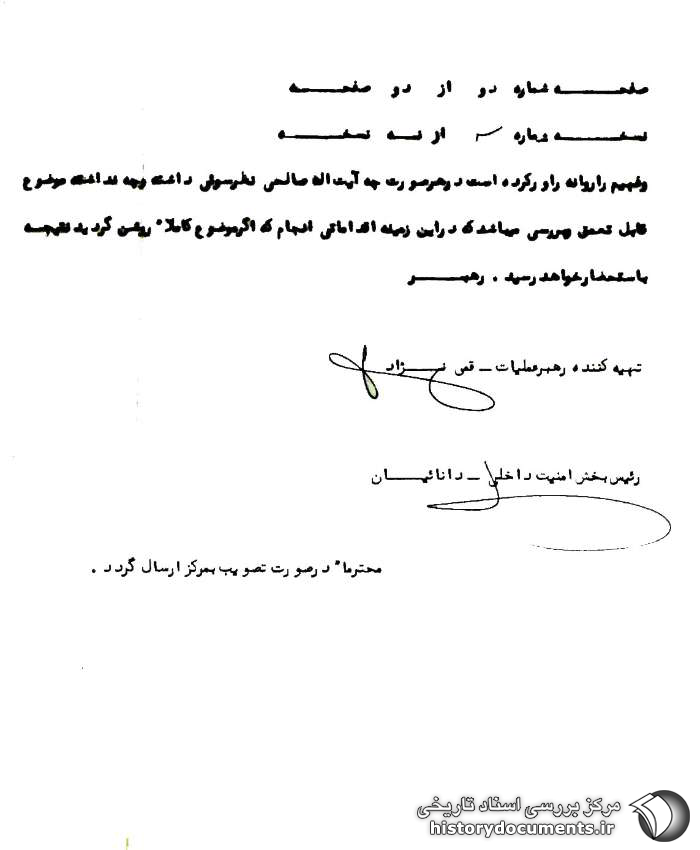 صفحه شماره دو از دو صفحه
نسخه شماره ۳ از سه نسخه
وفهیم را روانه راور کرده است در هر صورت چه آیت اله صالحی نظر سوئی داشته و چه نداشته موضوع
قابل تعمق و بررسی میباشد که در این زمینه اقداماتی انجام که اگر موضوع کاملا" روشن گردید نتیجه
باستحضار خواهد رسید . رهبر
تهیه کننده رهبر عملیات ـ قمی نژاد
رئیس بخش امنیت داخلی ـ دانائیان
محترما" در صورت تصویب بمرکز ارسال گردد .
مرکز بررسی اسناد تاریخی
historydocuments.ir